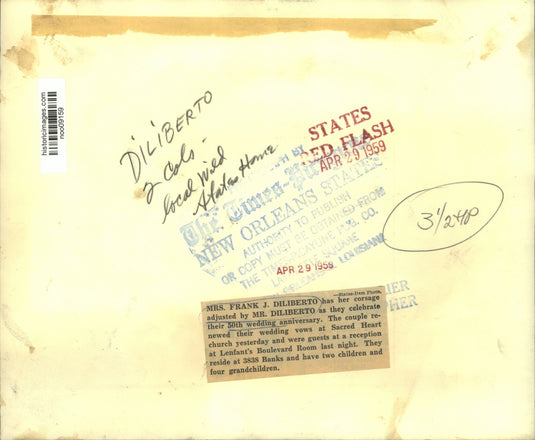 historicimages.com
noo09159
DILIBERTO
2 Cols -
local Wed
States Home
STATES
RED FLASH
APR 29 1959
BY
The Times-
NEW ORLEANS STATES
AUTHORITY TO PUBLISH
OR COPY MUST BE OBTAINED FROM
THE TIMES PICAYUNE PUB. CO.
LAFAYETTE SQUARE
NEW ORLEANS, LOUISIANA
APR 29 1959
3 1/2
—States-Item Photo.
MRS. FRANK J. DILIBERTO has her corsage
adjusted by MR. DILIBERTO as they celebrate
their 50th wedding anniversary. The couple re-
newed their wedding vows at Sacred Heart
church yesterday and were guests at a reception
at Lenfant's Boulevard Room last night. They
reside at 3838 Banks and have two children and
four grandchildren.